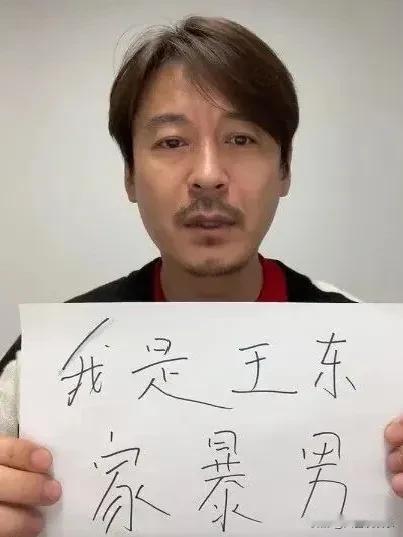 我是王东
家暴男